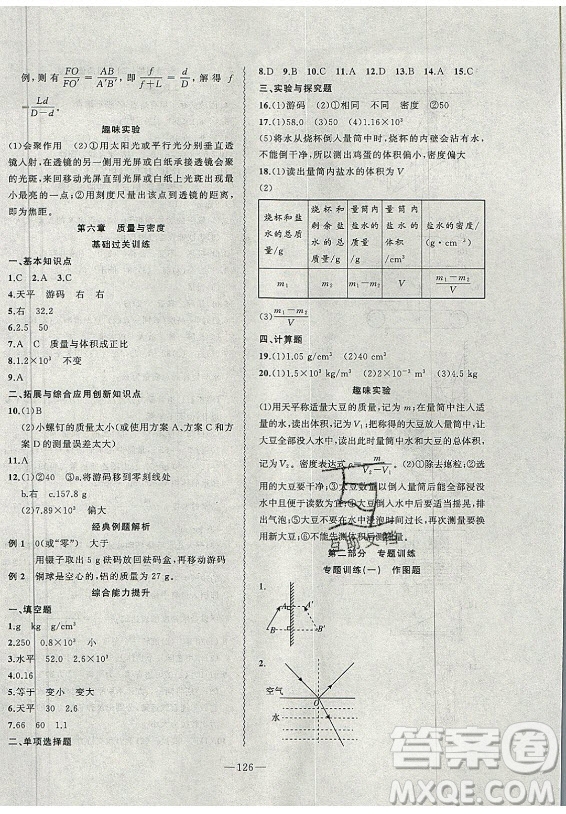 例,则有 FO/FO′ = AB/A′B′,即 f/(f+L) = d/D,解得 f
= Ld/(D−d).
趣味实验
(1)会聚作用 (2)①用太阳光或平行光分别垂直透
镜入射,在透镜的另一侧用光屏或白纸承接透过来
的光斑,来回移动光屏或白纸,使光屏或白纸上形成
最小最亮的一点;②用刻度尺测量光屏到透镜的距离,
即为焦距。
第六章 质量与密度
基础过关训练
一、基本知识点
1.C 2.A 3.C
4.天平 游码 右 右
5.右 32.2
6.2.5 50
7.A C 质量与体积成正比
8.1.2×10³ 不变
9.A
二、拓展与综合应用创新知识点
10.(1)B
(2)小螺钉的质量太小(或使用方案A、方案C与方
案D的测量误差太大)
11.A
12.(1)②40 ③a.将游码移到零刻线处
b.右 c.157.8 g
(2)7.89×10³ 偏大
经典例题解析
例1 0(或“零”) 大于
用镊子取出5 g砝码放回砝码盒,再移动游码
例2 铜球是空心的,铝的质量为27 g。
综合能力提升
一、填空题
1.g kg g/cm³
2.250 0.8×10³ 小
3.水平 52.0 2.6×10³
4.0.16
5.等于 变小 变大
6.天平 30 2.6
7.66 60 1.1
二、单项选择题
8.D 9.B 10.C 11.A 12.C 13.C 14.A 15.C
三、实验与探究题
16.(1)游码 (2)①相同 不同 密度 ②50
17.(1)58.0 (2)40 1.45 (3)小
(5)将水从烧杯倒入量筒中时,烧杯中的水倒不干
净,有残留,所以测出鸡蛋的体积偏小,密度偏大
18.(1)读出量筒内盐水的体积为V
(2)
烧杯和盐水的总质量/g
烧杯和剩余盐水的总质量/g
量筒内盐水的质量/g
量筒内盐水的体积/cm³
盐水的密度/(g·cm⁻³)
m₁ m₂ m₁−m₂ V (m₁−m₂)/V
(3)(m₁−m₂)/V
四、计算题
19.(1)1.05 g/cm³ (2)40 cm³
20.(1)1.2×10³ kg/m³ (2)3 kg (3)4.5 kg
趣味实验
(1)用天平称适量大豆的质量,记为m;在量筒中注入适
量的水,读出体积,记为V₁;把称得的大豆倒入量筒中,大
豆全部没入水中,读出水面达到的刻度,记为
V₂。密度表达式ρ=m/(V₂−V₁)。(2)①除去瘪粒;②选用
较多数量的大豆;③往量筒中注水时或大豆倒入量筒时
防止水溅出;④大豆倒入水中后要适当摇晃,以便排出
气泡;⑤大豆不能在水中浸泡时间过久;⑥多次更换使
用新大豆,以尽可能测准质量和体积。
第二部分 专题训练
专题训练(一) 作图题
1.
A A′
B B′
2.
空气 O
水
—126—
互助文档
答案圈
作业精灵